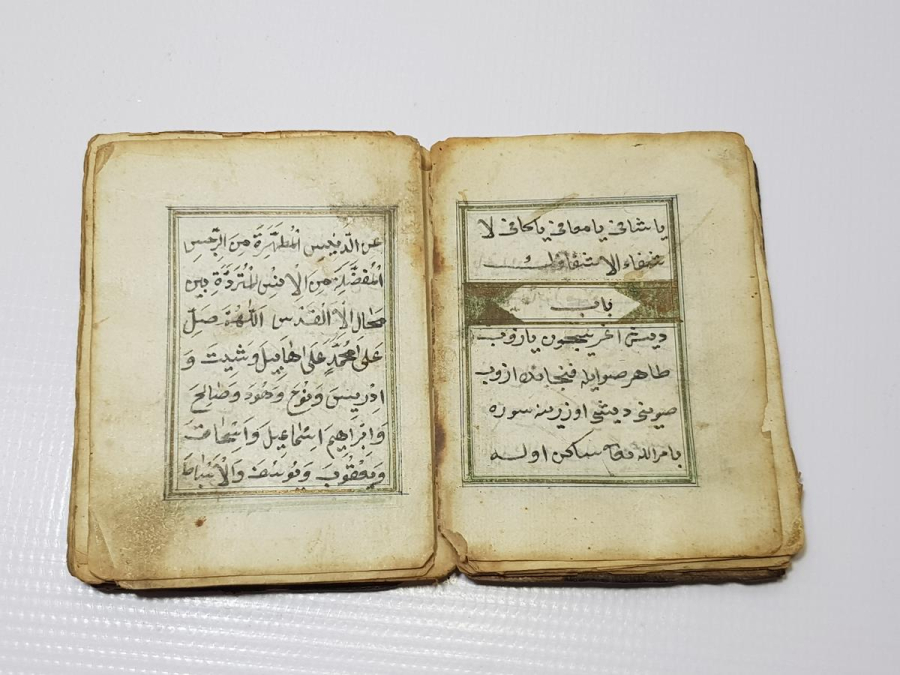 يا شافي يا معافي يا كافي لا
شفاء الا شفاؤك
باب
ديش اغريسيچون يازوب
طاهر صوايله فنجانك ازوب
صويني ديشي اوزرينه سوره
بامر الله ساكن اوله
عن الدنيس المطهرة من الرجس
المفضلة من الانس المترددة بين
القدس اللهم صل
على محمد على هابيل وشيت و
ادريس ونوح وهود وصالح
وابراهيم اسماعيل واسحاق
ويعقوب ويوسف والاسباط